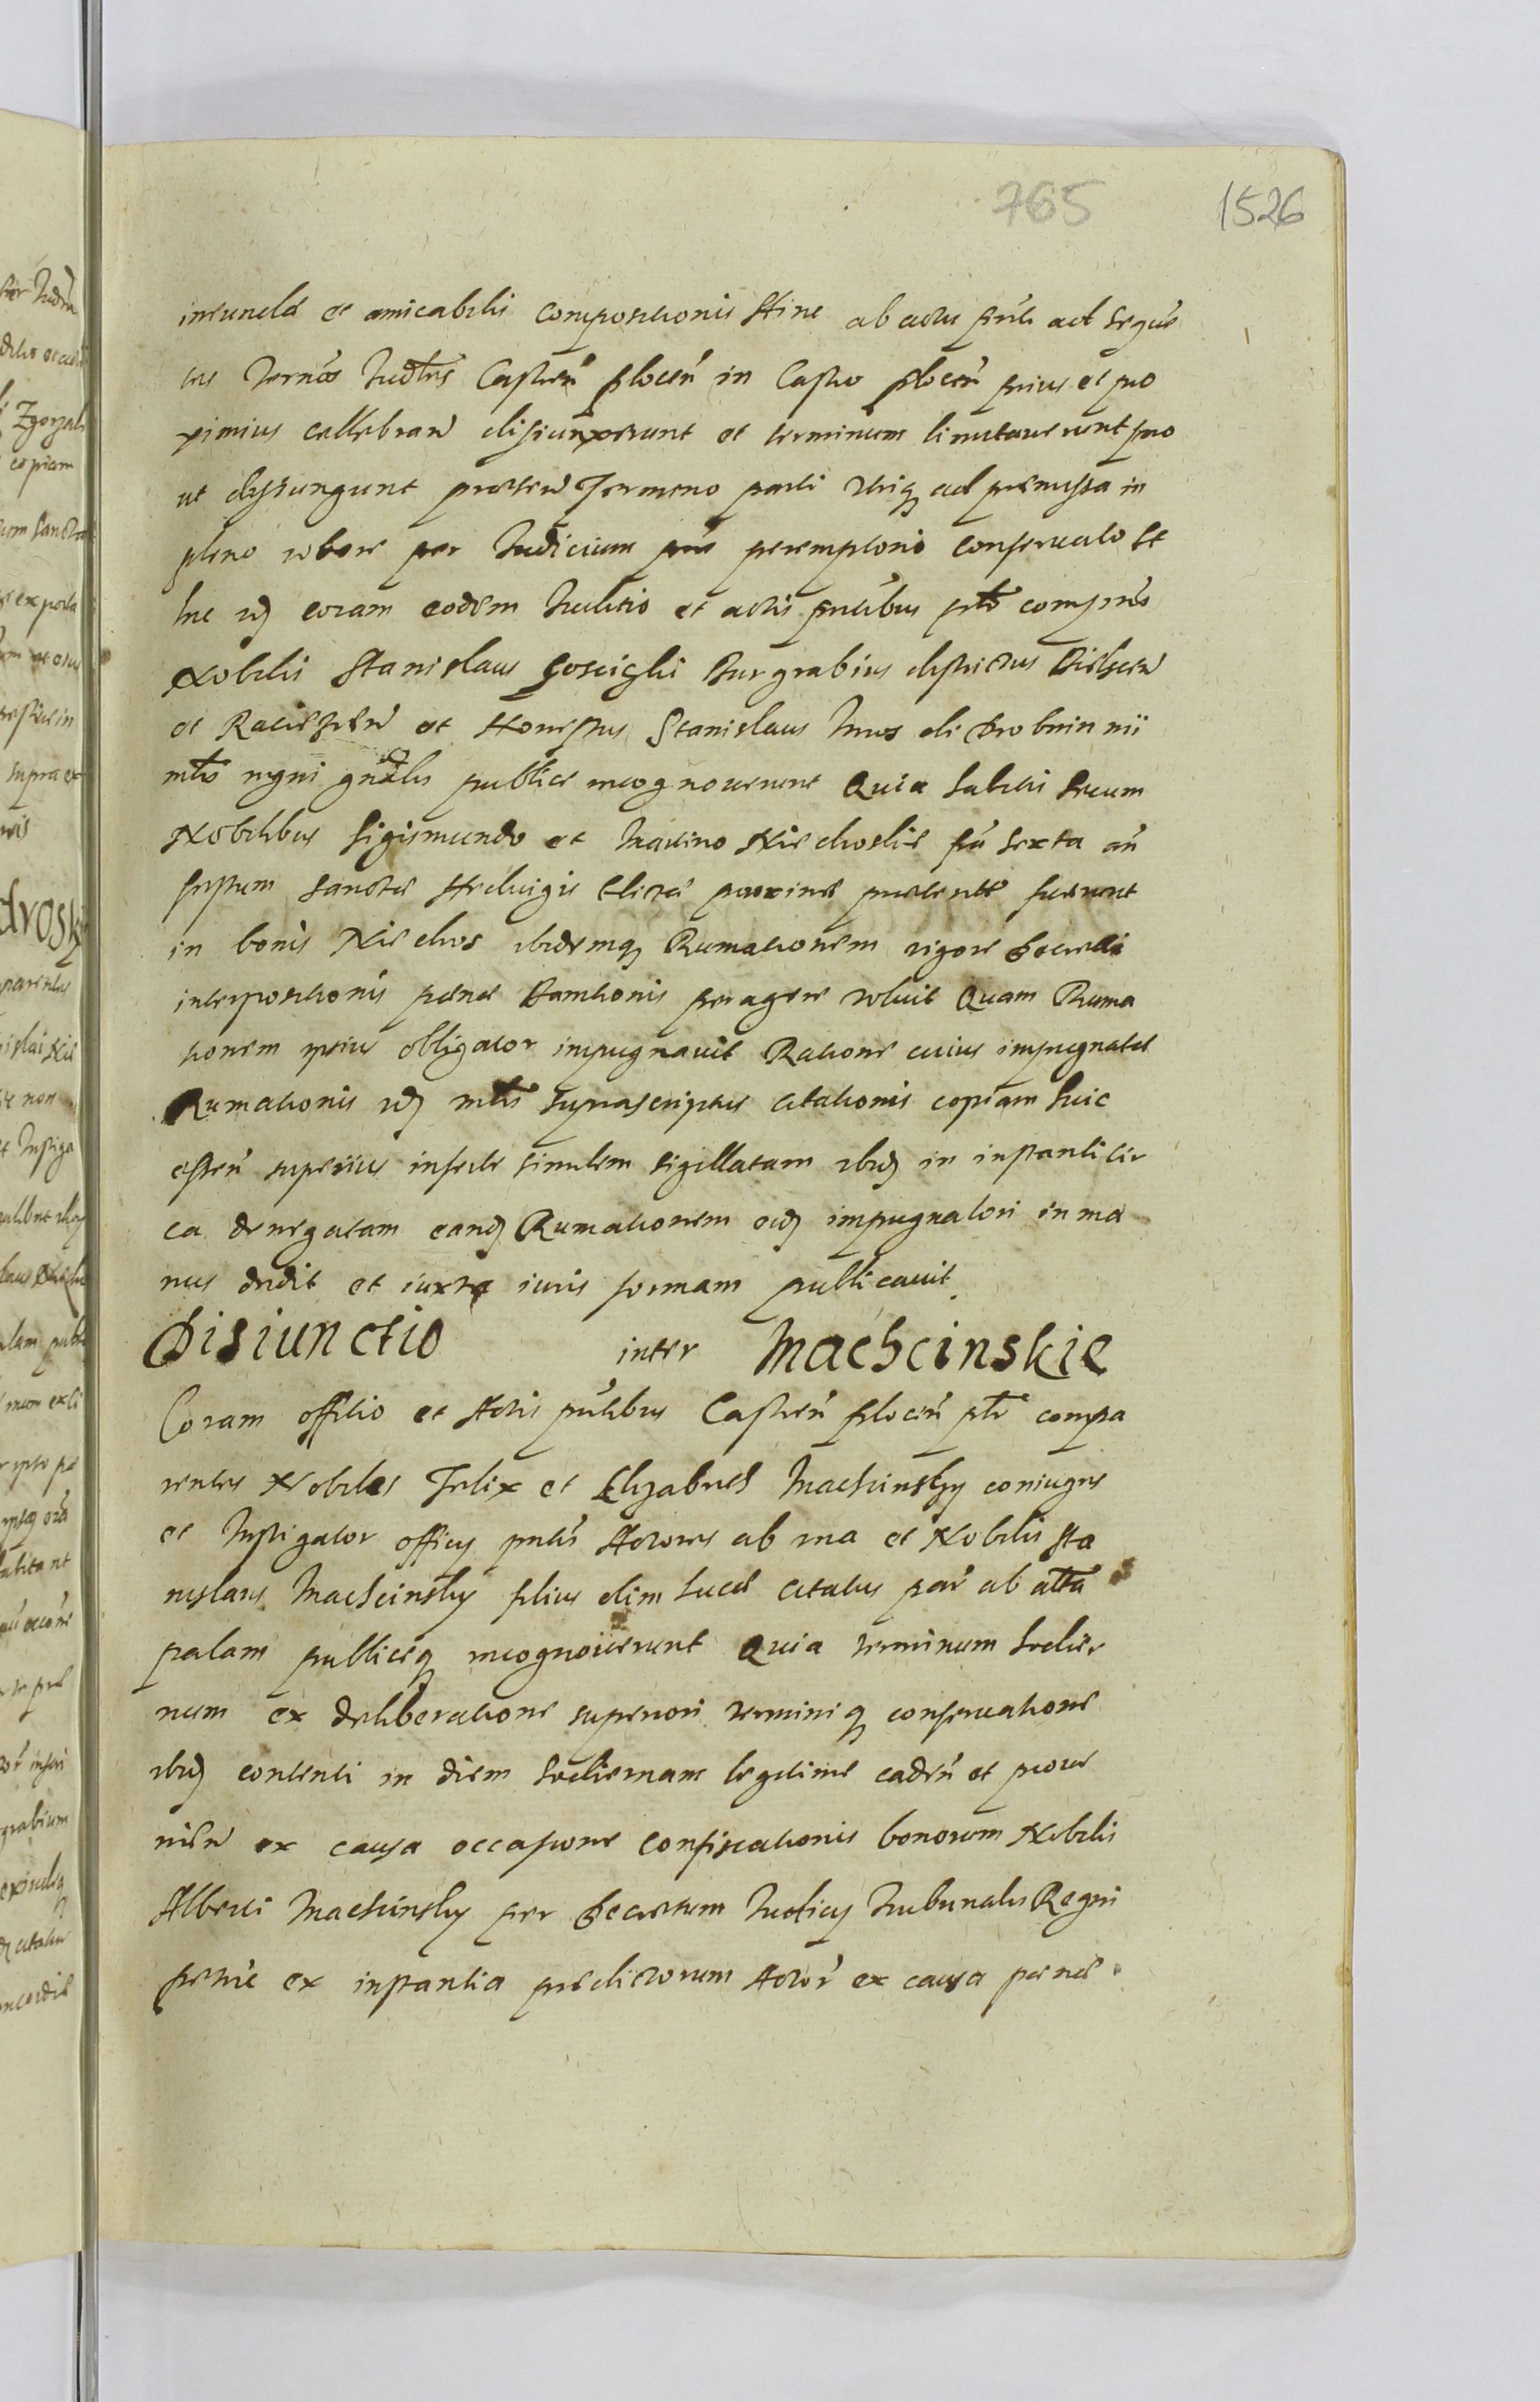 765 1526
ineundae et amicabilis compositionis fine ab actu pñti ad seque
tes Terños Judũ Castreñ Plocen̄ in Castro plocen̄ prius et pro
ximius cellebrañ disiunxerunt et terminum limitaverunt pro
ut disiungunt praesen̄ Termino parti utriq ad premissa in
pleno robore per Judicium pñs peremptorio conservato Et
hic idq coram eodem Juditio et actis pñtibus pło compñs
Nobilis Stanislaus Gosciczki Burgrabius districtus Bielscen̄
et Raciezen̄ et Honestus Stanislaus de Drobnin
młis regni gñalis publice recognoverunt Quia habitis secum
Nobilibus Sigismundo et Martino Niedroskie fã sexta añ
festum Sanctae Hedvigis Electae proxime praeterito fuerunt
in bonis Niedros ibidemq Rumationem vigore Decreti
interpositionis penae Bannionis peragere voluit Quam Ruma
tionem ipsius obligator impugnavit Ratione cuius impugnatae
Rumationis idq młis suprascriptus citationis copiam huic
esseñ superius insertae similem sigillatam ibidq in instanti cir
ca denegatam eandq Rumationem eidq impugnatori in ma
nus dedit et iuxta iuris formam publicavit.
Disiunctio inter Machcinskie
Coram offitio et Actis pñtibus Castren̄ Plocen̄ płr compa
rentes Nobiles Felix et Elizabeth Machcinsky coniuges
et Instigator officy pñtis Actores ab una et Nobilis Sta
nislaus Machcinsky filius olim Lucae citatus par̄ ab altã
palam publiceq recognoverunt Quia terminum hodier
num ex deliberatione superiori terminiq conservatione
ibidq contenti in diem hodiernam legitime cadeñ et prove
nieñ ex causa occasione confiscationis bonorum Nobilis
Alberti Machcinsky per Decretum Judicy Tribunalis Regni
ex instantia praedictorum Actor̃ ex causa penae